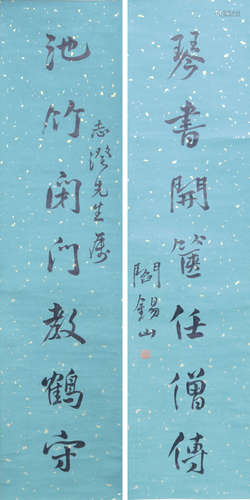 琴書開篋任僧傅
池竹閑門教鶴守
志澄先生屬
閻錫山